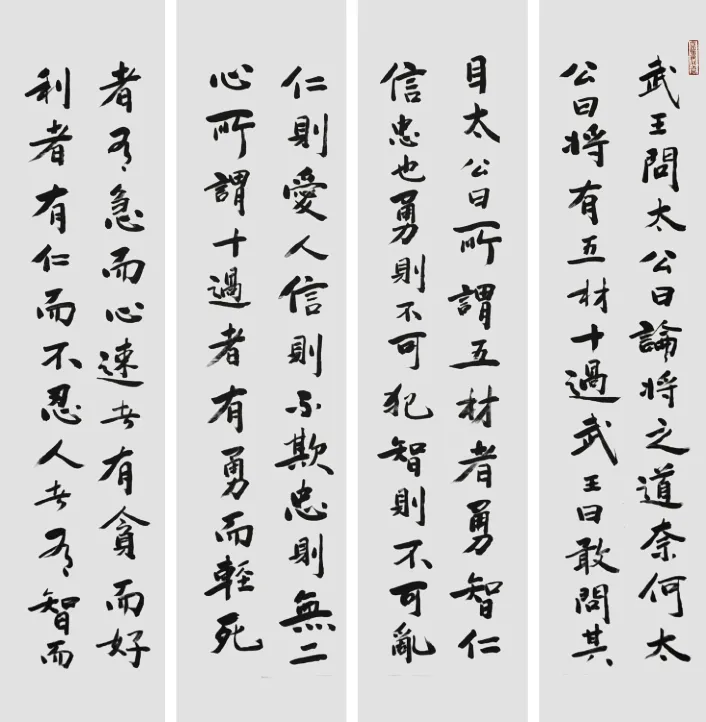 武王問太公曰論將之道奈何太
公曰將有五材十過武王曰敢問其
目太公曰所謂五材者勇智仁
信忠也勇則不可犯智則不可亂
仁則愛人信則不欺忠則無二
心所謂十過者有勇而輕死
者有急而心速者有貪而好
利者有仁而不忍人者有智而